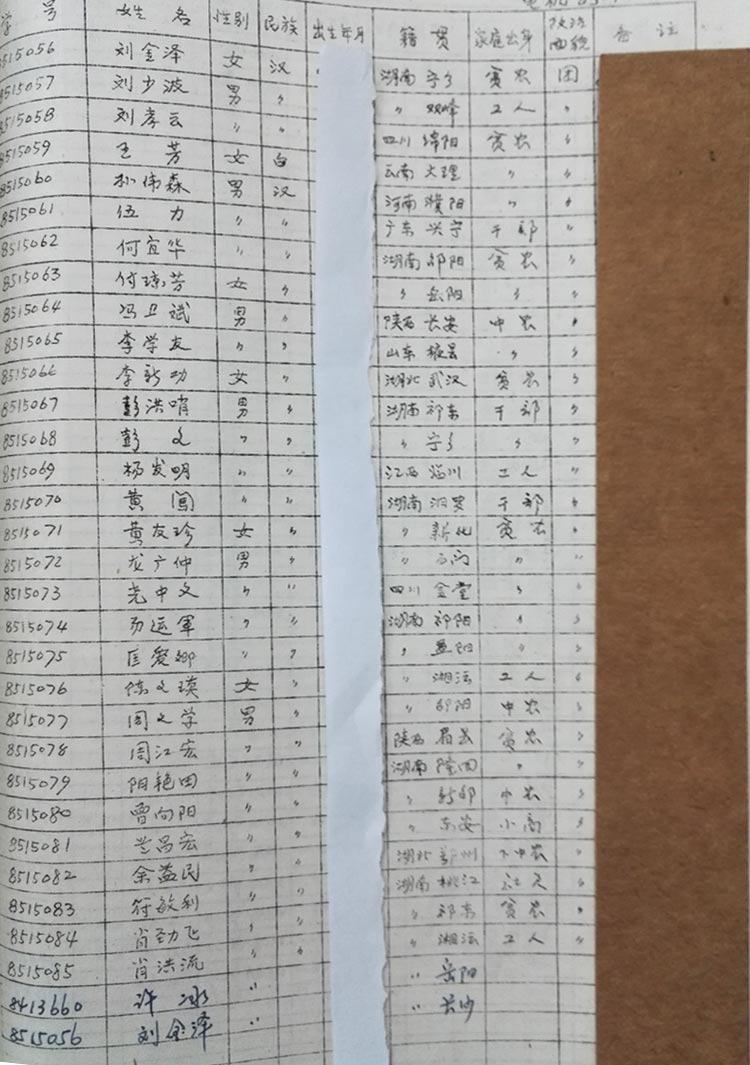 学 号 姓 名 性别 民族 出生年月 籍 贯 家庭出身 政治面貌 备 注
8515056 刘金泽 女 汉 湖南 宁乡 贫农 团
8515057 刘少波 男 〃 〃 双峰 工人 〃
8515058 刘孝云 〃 〃 四川 绵阳 贫农 〃
8515059 王 芳 女 白 云南 大理 〃 〃
8515060 伟森 男 汉 河南 濮阳 〃 〃
8515061 伍 力 〃 〃 广东 兴宁 干部 〃
8515062 何宜华 〃 〃 湖南 祁阳 贫农 〃
8515063 何琼芳 女 〃 〃 岳阳 〃 〃
8515064 冯卫斌 男 〃 陕西 长安 中农 〃
8515065 李学友 〃 〃 山东 掖县 〃 〃
8515066 李新功 女 〃 湖北 武汉 贫农 〃
8515067 彭洪哨 男 〃 湖南 祁东 干部 〃
8515068 彭 文 〃 〃 〃 宁乡 〃 〃
8515069 杨发明 〃 〃 江西 临川 工人 〃
8515070 黄 闯 〃 〃 湖南 汨罗 干部 〃
8515071 黄友珍 女 〃 〃 新化 贫农 〃
8515072 龙广仲 男 〃 〃 石门 〃 〃
8515073 尧中文 〃 〃 四川 金堂 〃 〃
8515074 运军 〃 〃 湖南 祁阳 〃 〃
8515075 匡爱娜 〃 〃 〃 益阳 〃 〃
8515076 陈文瑛 女 〃 〃 湘潭 工人 〃
8515077 周文学 男 〃 〃 邵阳 中农 〃
8515078 周江宏 〃 〃 陕西 眉县 贫农 〃
8515079 阳艳田 〃 〃 湖南 隆回 〃 〃
8515080 曾向阳 〃 〃 〃 新邵 中农 〃
8515081 昌宏 〃 〃 〃 东安 小商 〃
8515082 余益民 〃 〃 湖北 鄂州 下中农 〃
8515083 符敏利 〃 〃 湖南 桃江 〃
8515084 肖劲飞 〃 〃 〃 祁东 贫农 〃
8515085 肖洪流 〃 〃 〃 湘潭 工人 〃
8413660 许 冰 〃 〃 岳阳
8515056 刘金泽 〃 长沙